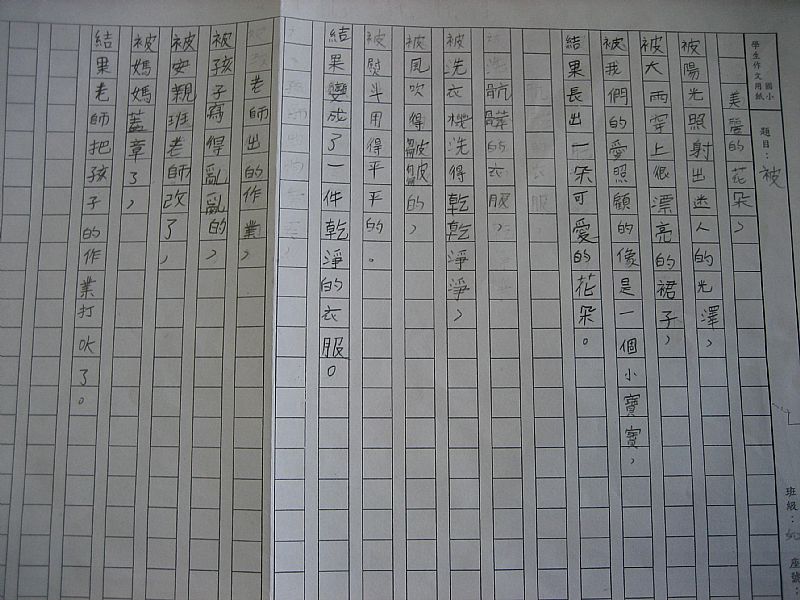 國小
學生作文用紙
題目：被
班級：
座號：
美麗的花朵，
被陽光照射出迷人的光澤，
被大雨穿上很漂亮的裙子，
被我們的愛照顧的像是一個小寶寶，
結果長出一朵可愛的花朵。
骯髒的衣服，
被洗衣機洗得乾乾淨淨，
被風吹得皺皺的，
被熨斗用得平平的。
結果變成了一件乾淨的衣服。
老師出的作業，
被孩子寫得亂亂的，
被安親班老師改了，
被媽媽蓋章了，
結果老師把孩子的作業打叉了。